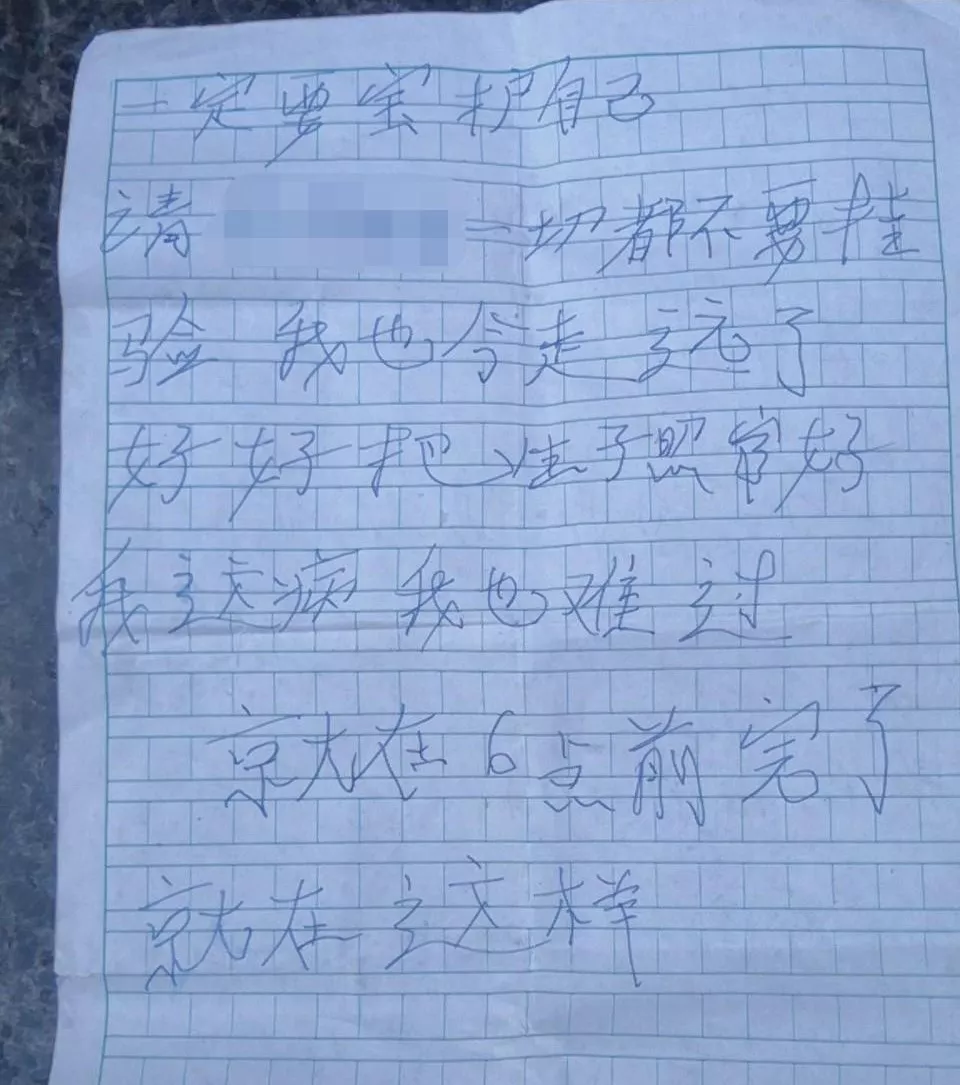 一定要宝护自己
请 一切都不要挂
验 我也今走远了
好好把子照官好
我这病 我也难过
就在6点前完了
就在这样